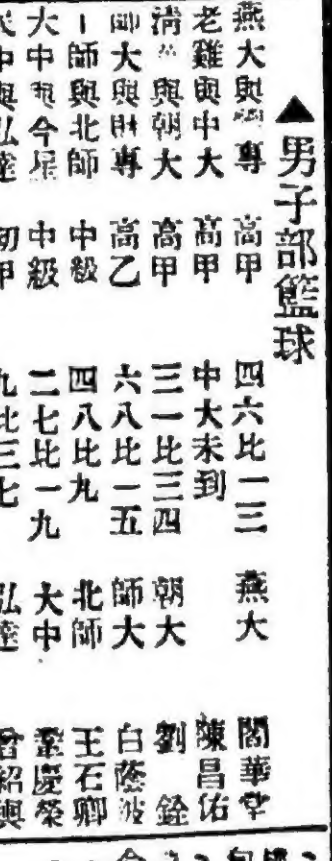 ▲男子部籃球
燕大與 專 高甲 四六比一三 燕大 閻華堂
老雞與中大 高甲 中大未到 陳昌佑
清 與朝大 高甲 三一比三四 朝大 劉銓
師大與財專 高乙 六八比一五 師大 白蔭波
師與北師 中級 四八比九 北師 王石卿
大中與今星 中級 二七比一九 大中 慶榮
中與弘達 初甲 九比三七 弘達 曾紹興